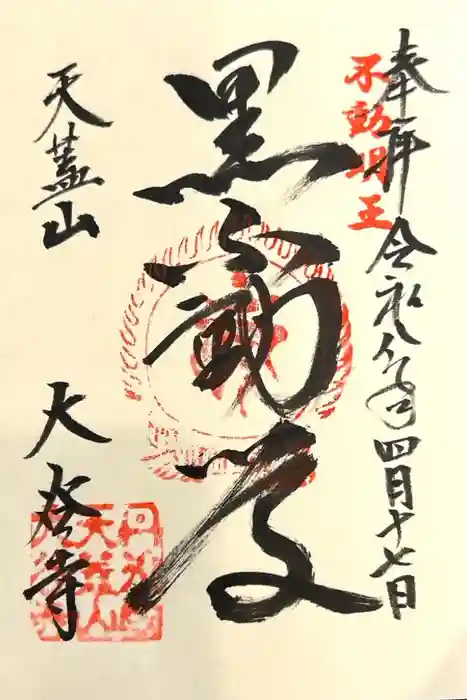 奉拝
令和八年四月十七日
不動明王
黒不動尊
天蓋山